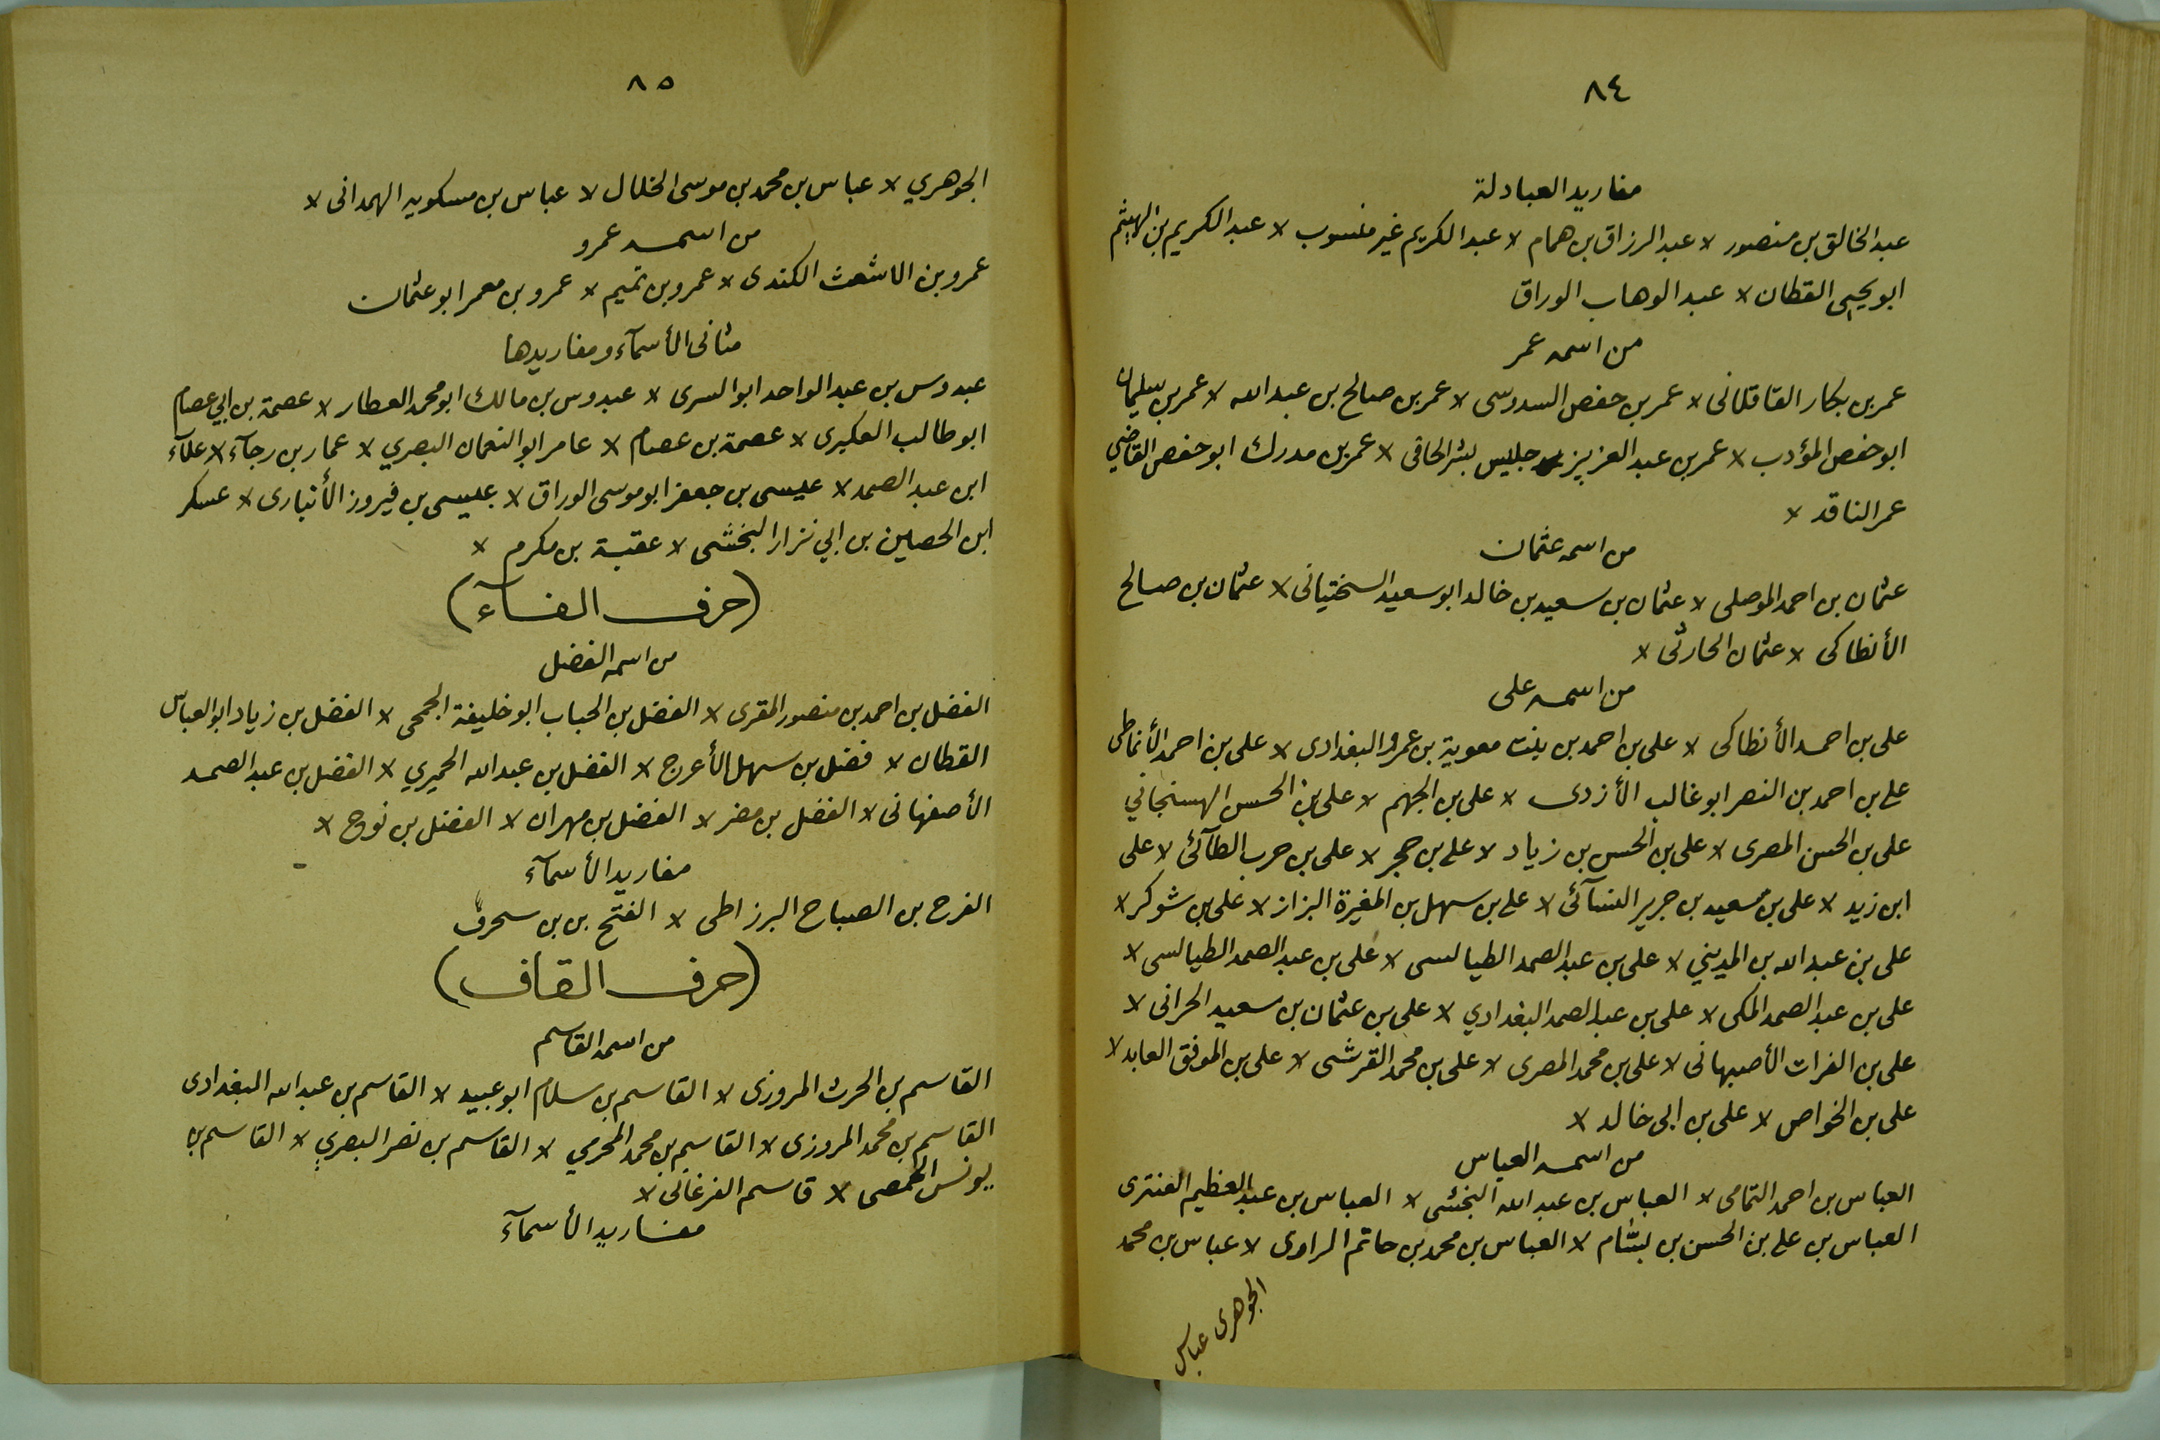 ٨٤
مفاريد العبادلة
عبد الخالق بن منصور × عبد الرزاق بن همام × عبد الكريم غير منسوب × عبد الكريم بن الهيثم
ابو يحيى القطان × عبد الوهاب الوراق
من اسمه عمر
عمر بن بكار القاقلانى × عمر بن حفص السدوسى × عمر بن صالح بن عبد الله × عمر بن سليمان
ابو حفص المؤدب × عمر بن عبد العزيز جليس بشر الحافى × عمر بن مدرك ابو حفص القاضي
عمر الناقد ×
من اسمه عثمان
عثمان بن احمد الموصلى × عثمان بن سعيد بن خالد ابو سعيد السختيانى × عثمان بن صالح
الأنطاكى × عثمان الحارثى ×
من اسمه على
على بن احمد الأنطاكى × على بن احمد بن بنت معوية بن عمرو البغدادى × على بن احمد الأنماطى
على بن احمد بن النصر ابو غالب الأزدى × على بن الجهم × على بن الحسن الهسنجاني
على بن الحسن المصرى × على بن الحسن بن زياد × على بن حجر × على بن حرب الطآئى × على
ابن زيد × على بن سعيد بن جرير النسآئى × على بن سهل بن المغيرة البزاز × على بن شوكر ×
على بن عبد الله بن المديني × على بن عبد الصمد الطيالسى × على بن عبد الصمد الطيالسى ×
على بن عبد الصمد المكى × على بن عبد الصمد البغدادي × على بن عثمان بن سعيد الحرانى ×
على بن الفرات الأصبهانى × على بن محمد المصرى × على بن محمد القرشى × على بن الموفق العابد ×
على بن الخواص × على بن ابى خالد ×
من اسمه العباس
العباس بن احمد اليمامى × العباس بن عبد الله النخشى × العباس بن عبد العظيم العنبرى
العباس بن على بن الحسن بن بسام × العباس بن محمد بن حاتم الراوى × عباس بن محمد
الجوهرى عباس
٨٥
الجوهري × عباس بن محمد بن موسى الخلال × عباس بن مسكويه الهمدانى ×
من اسمه عمرو
عمرو بن الاشعث الكندى × عمرو بن تميم × عمرو بن معمر ابو عثمان
مثانى الأسمآء ومفاريدها
عبدوس بن عبد الواحد ابو السرى × عبدوس بن مالك ابو محمد العطار × عصمة بن ابي عصام
ابو طالب العكبرى × عصمة بن عصام × عامر ابو النعمان البصري × عمار بن رجآء × علآء
ابن عبد الصمد × عيسى بن جعفر ابو موسى الوراق × عيسى بن فيروز الأنبارى × عسكر
ابن الحصين بن ابي نزار النخشى × عقبة بن مكرم ×
(حرف الفآء)
من اسمه الفضل
الفضل بن احمد بن منصور المقرى × الفضل بن الحباب ابو خليفة الجمحى × الفضل بن زياد ابو العباس
القطان × فضل بن سهل الأعرج × الفضل بن عبد الله الحميري × الفضل بن عبد الصمد
الأصفهانى × الفضل بن مضر × الفضل بن مهران × الفضل بن نوح ×
مفاريد الأسمآء
الفرج بن الصباح البرزاطى × الفتح بن بن سحرف
(حرف القاف)
من اسمه القاسم
القاسم بن الحرث المروزى × القاسم بن سلام ابو عبيد × القاسم بن عبد الله البغدادى
القاسم بن محمد المروزى × القاسم بن محمد المخرمي × القاسم بن نصر البصري × القاسم بن
يونس الحمصى × قاسم الفرغانى ×
مفاريد الأسمآء